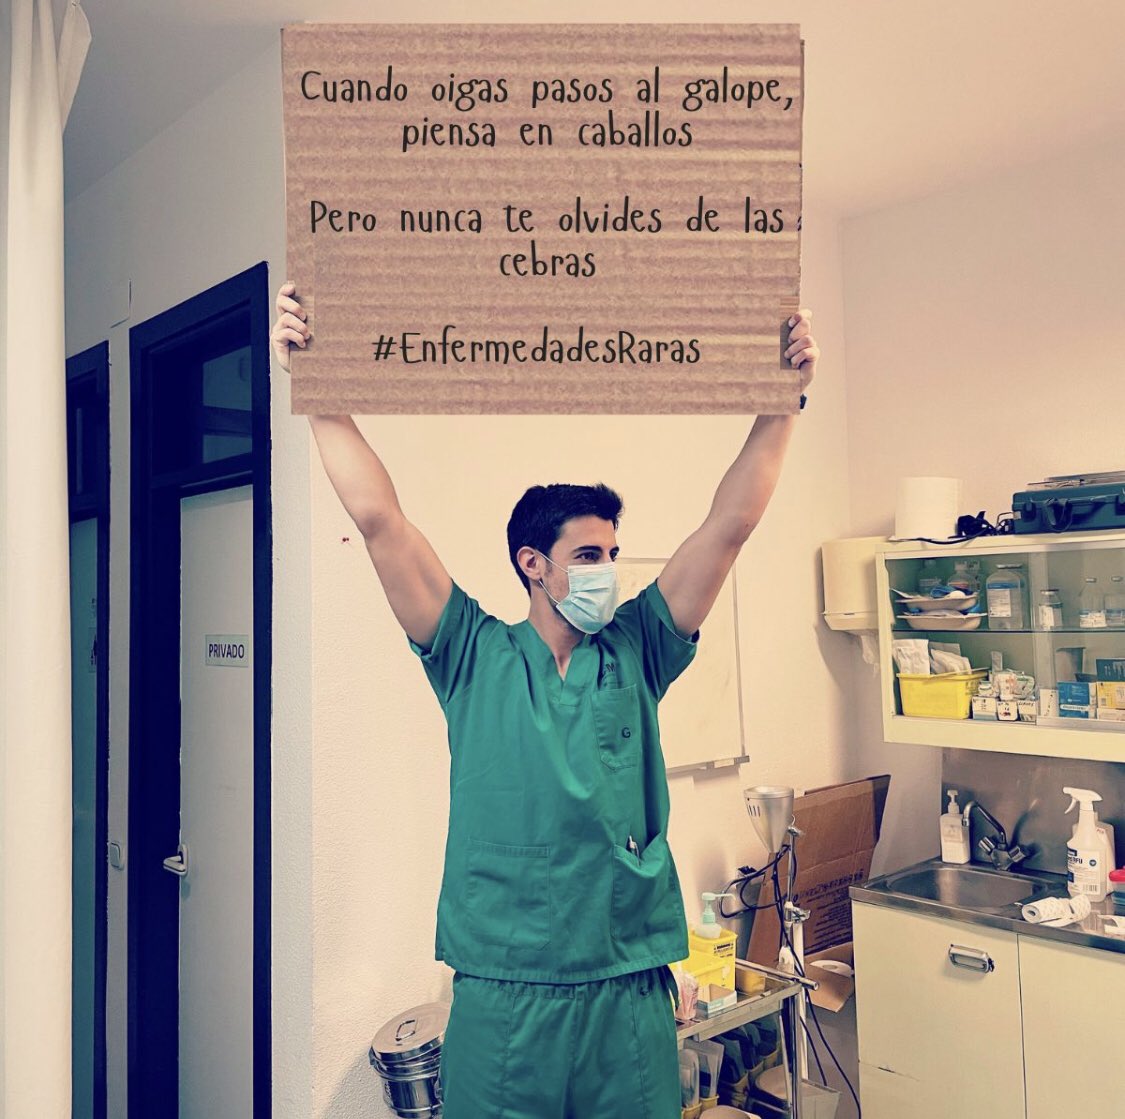 Cuando oigas pasos al galope,
piensa en caballos
Pero nunca te olvides de las
cebras
#EnfermedadesRaras
PRIVADO
G